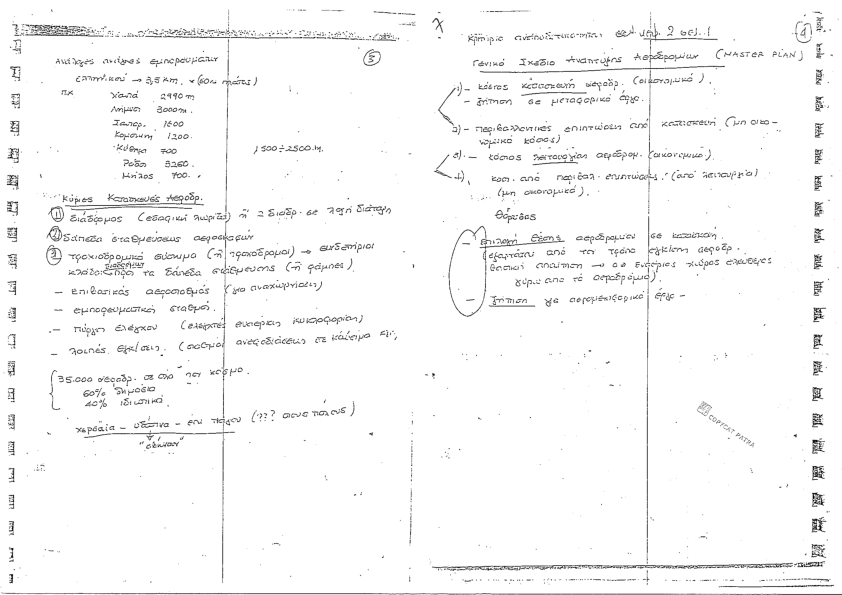 ③
Ανάλογες ανάγκες εμπορευμάτων
→ 3,5 km. × (60m πλάτος)
πχ Χανιά 2990 m
Λήμνος 3000 m.
1600
Κομοτηνή 1200.
Κύθηρα 700
1500÷2500 m.
Ρόδος 3260.
Μήλος 700.
Κύριες Κατασκευές Αεροδρ.
① διάδρομος (εδαφική λωρίδα) ή 2 διαδρ. σε λοξή διάταξη
② δάπεδα σταθμεύσεως αεροσκαφών
③ τροχιοδρομικό σύστημα (ή τροχοδρομοί) → συνδετήριοι
διαδρόμων
κλάδοι προς τα δάπεδα στάθμευσης (ή ράμπες)
- επιβατικός αεροσταθμός (για αναχωρήσεις)
- εμπορευματικοί σταθμοί.
- πύργοι ελέγχου (ελεγκτές εναέριας κυκλοφορίας)
- λοιπές εγκ/σεις. (σταθμοί ανεφοδιάσεως σε καύσιμα κλπ,
35.000 αεροδρ. σε όλο τον κόσμο.
60% δημόσια
40% ιδιωτικά
χερσαία - υδάτινα - επί πάγου (??? στους πόλους)
④
Χ
Κριτήριο ανταποδοτικότητας σελ. 1
Γενικό Σχέδιο Ανάπτυξης Αεροδρομίων (MASTER PLAN)
1) - κόστος κατασκευή αεροδρ. (οικονομικό).
- ζήτηση σε μεταφορικό έργο.
2) - περιβαλλοντικές επιπτώσεις από κατασκευή (μη οικο-
νομικό κόστος)
3) - κόστος λειτουργίας αεροδρομ. (οικονομικό)
4) κοστ. από περιβαλ. επιπτώσεις. (από λειτουργία)
(μη οικονομικό).
Θόρυβος
- Επιλογή θέσης αεροδρομίου σε κατασκευή
(εξαρτάται από τον τρόπο εγκ/σης αεροδρ.
βασική απαίτηση → ο εναέριος χώρος ελεύθερος
γύρω από το αεροδρόμιο)
- Ζήτηση για αερομεταφορικό έργο -
COPYCAT PATRA